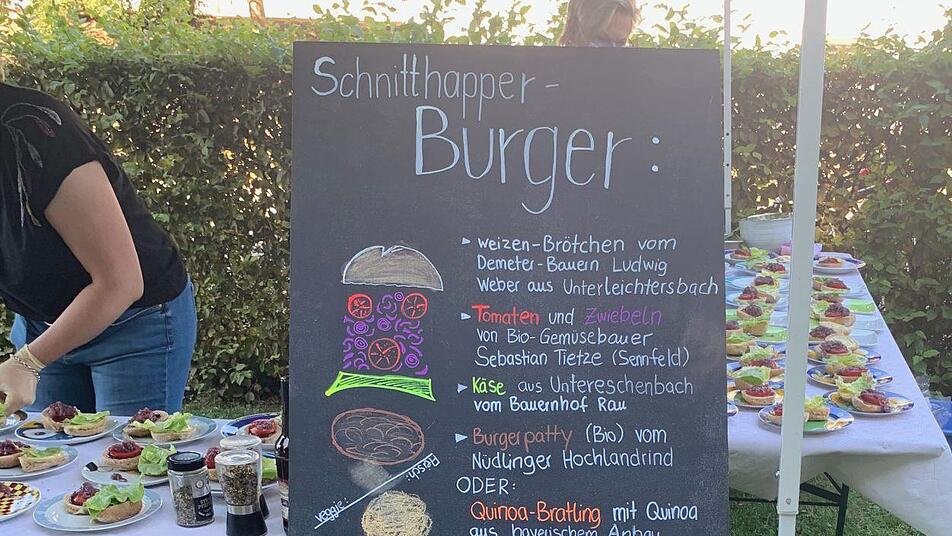 Schnitthapper-
Burger:
▸ Weizen-Brötchen vom
Demeter-Bauern Ludwig
Weber aus Unterleichtersbach
▸ Tomaten und Zwiebeln
von Bio-Gemüsebauer
Sebastian Tietze (Sennfeld)
▸ Käse aus Untereschenbach
vom Bauernhof Rau
▸ Burgerpatty (Bio) vom
Nüdlinger Hochlandrind
ODER:
Quinoa-Bratling mit Quinoa
aus bayerischem Anbau
Fleisch:
veggie: